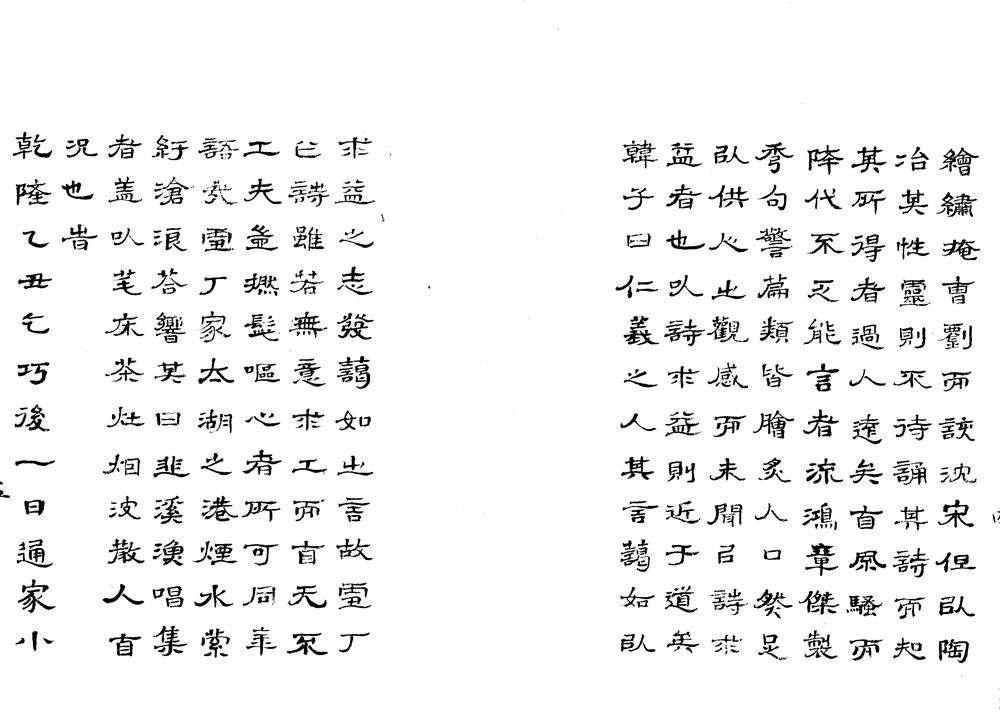 繪繡掩曹劉而詼沈宋但㠯陶
冶其性靈則不待誦其詩而知
其所得者過人遠矣自風騷而
降代不乏能言者流鴻章傑製
秀句警篇類皆膾炙人口然足
㠯供人之觀感而未聞㠯詩求
益者也㠯詩求益則近于道矣
韓子曰仁義之人其言藹如㠯
求益之志發藹如之言故雷丁
之詩雖若無意求工而有天不
工夫並撚髭嘔心者所可同年
語我雷丁家太湖之港煙水縈
紆滄浪荅響其曰韭溪漁唱集
者盖㠯茗床茶灶烟波散人自
況也旹
乾隆乙丑乞巧後一日通家小